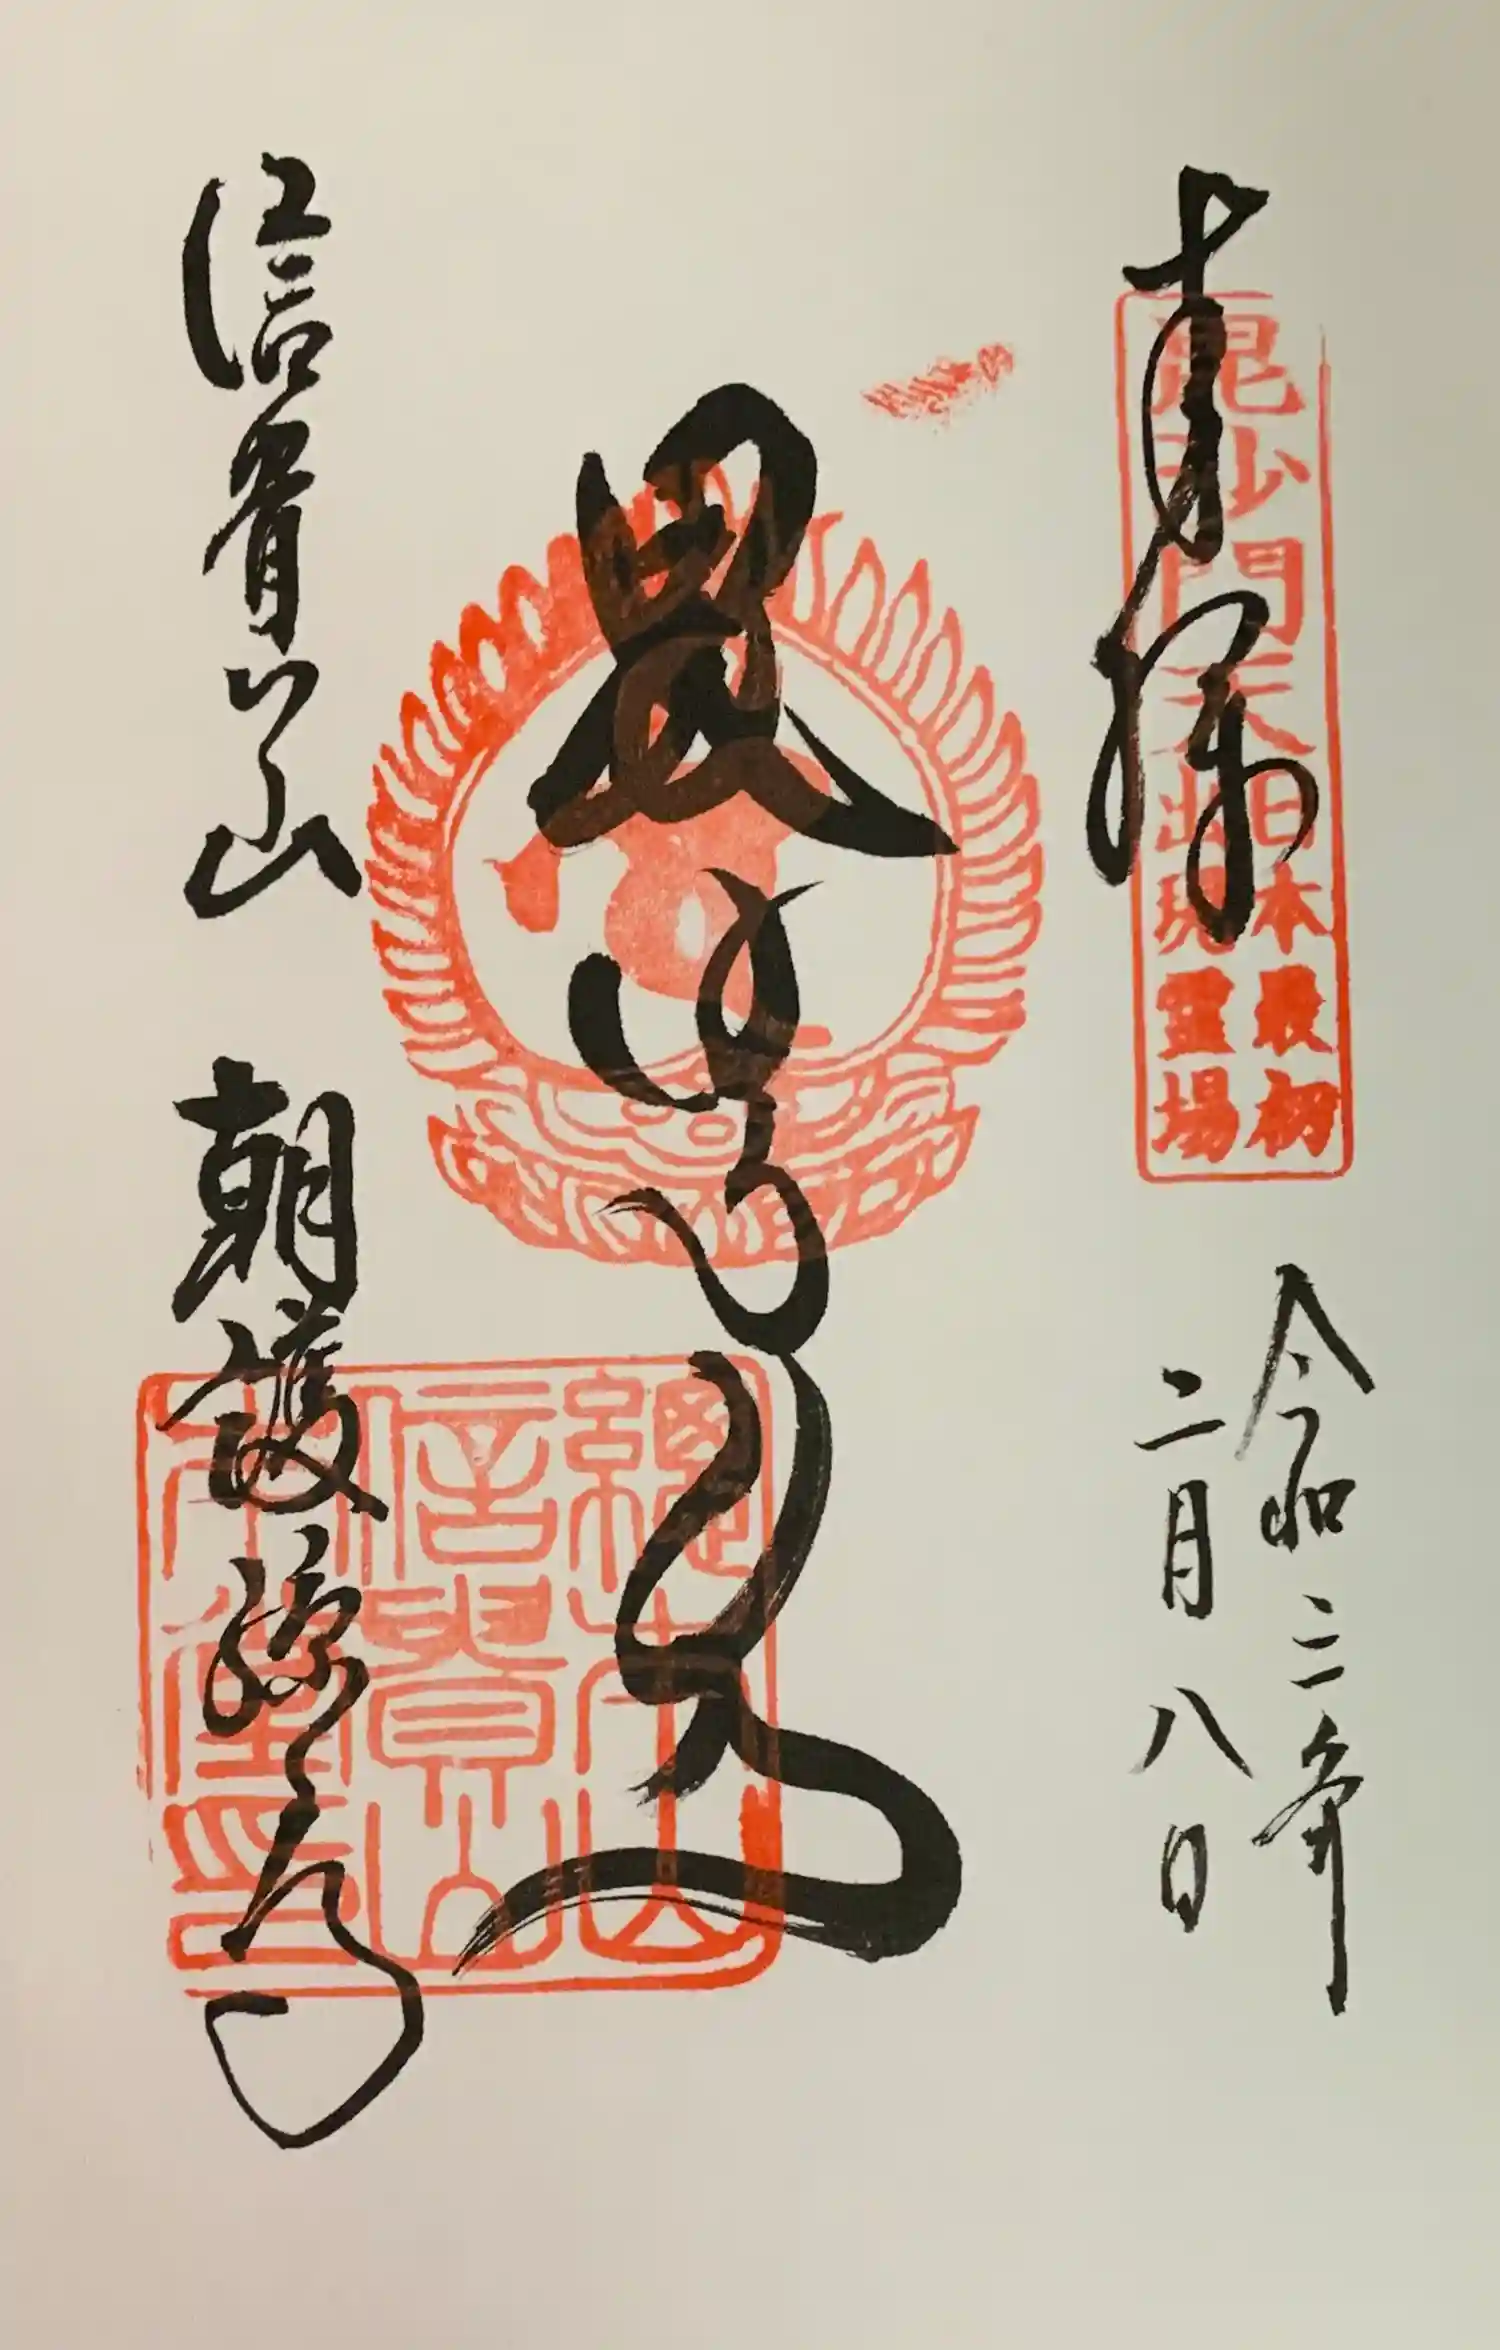 奉拝
毘沙門天
日本最初
出現霊場
令和三年
二月八日
毘沙門天
總本山
信貴山
本堂印
信貴山 朝護孫子寺